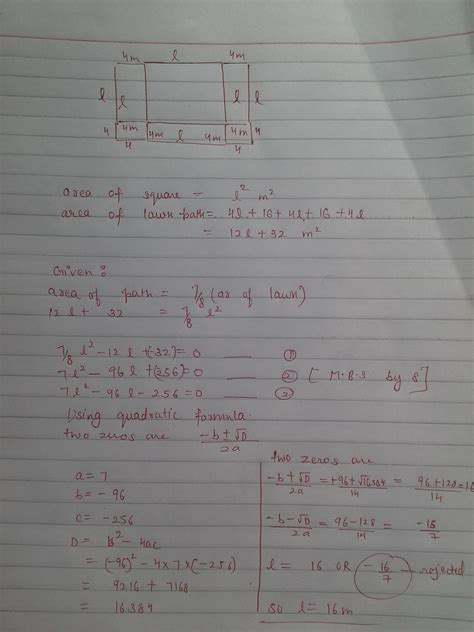 4m l 4m
l l l l
4 4m 4m l 4m 4m 4
4 4
area of square = l² m²
area of lawn path = 4l + 16 + 4l + 16 + 4l
= 12l + 32 m²
Given :
area of path = 7/8 (ar of lawn)
12l + 32 = 7/8 l²
7/8 l² - 12l + (-32) = 0 ——— ①
7l² - 96l + (-256) = 0 ——— ② [M.B.S by 8]
7l² - 96l - 256 = 0 ——— ③
Using quadratic formula.
two zeros are -b ± √D / 2a
a = 7
b = -96
c = -256
D = b² - 4ac
= (-96)² - 4 x 7 x (-256)
= 9216 + 7168
= 16384
two zeros are
-b + √D / 2a = +96 + √16384 / 14 = 96 + 128 / 14 = 16
-b - √D / 2a = 96 - 128 / 14 = -16 / 7
l = 16 OR -16/7 - rejected
so l = 16m